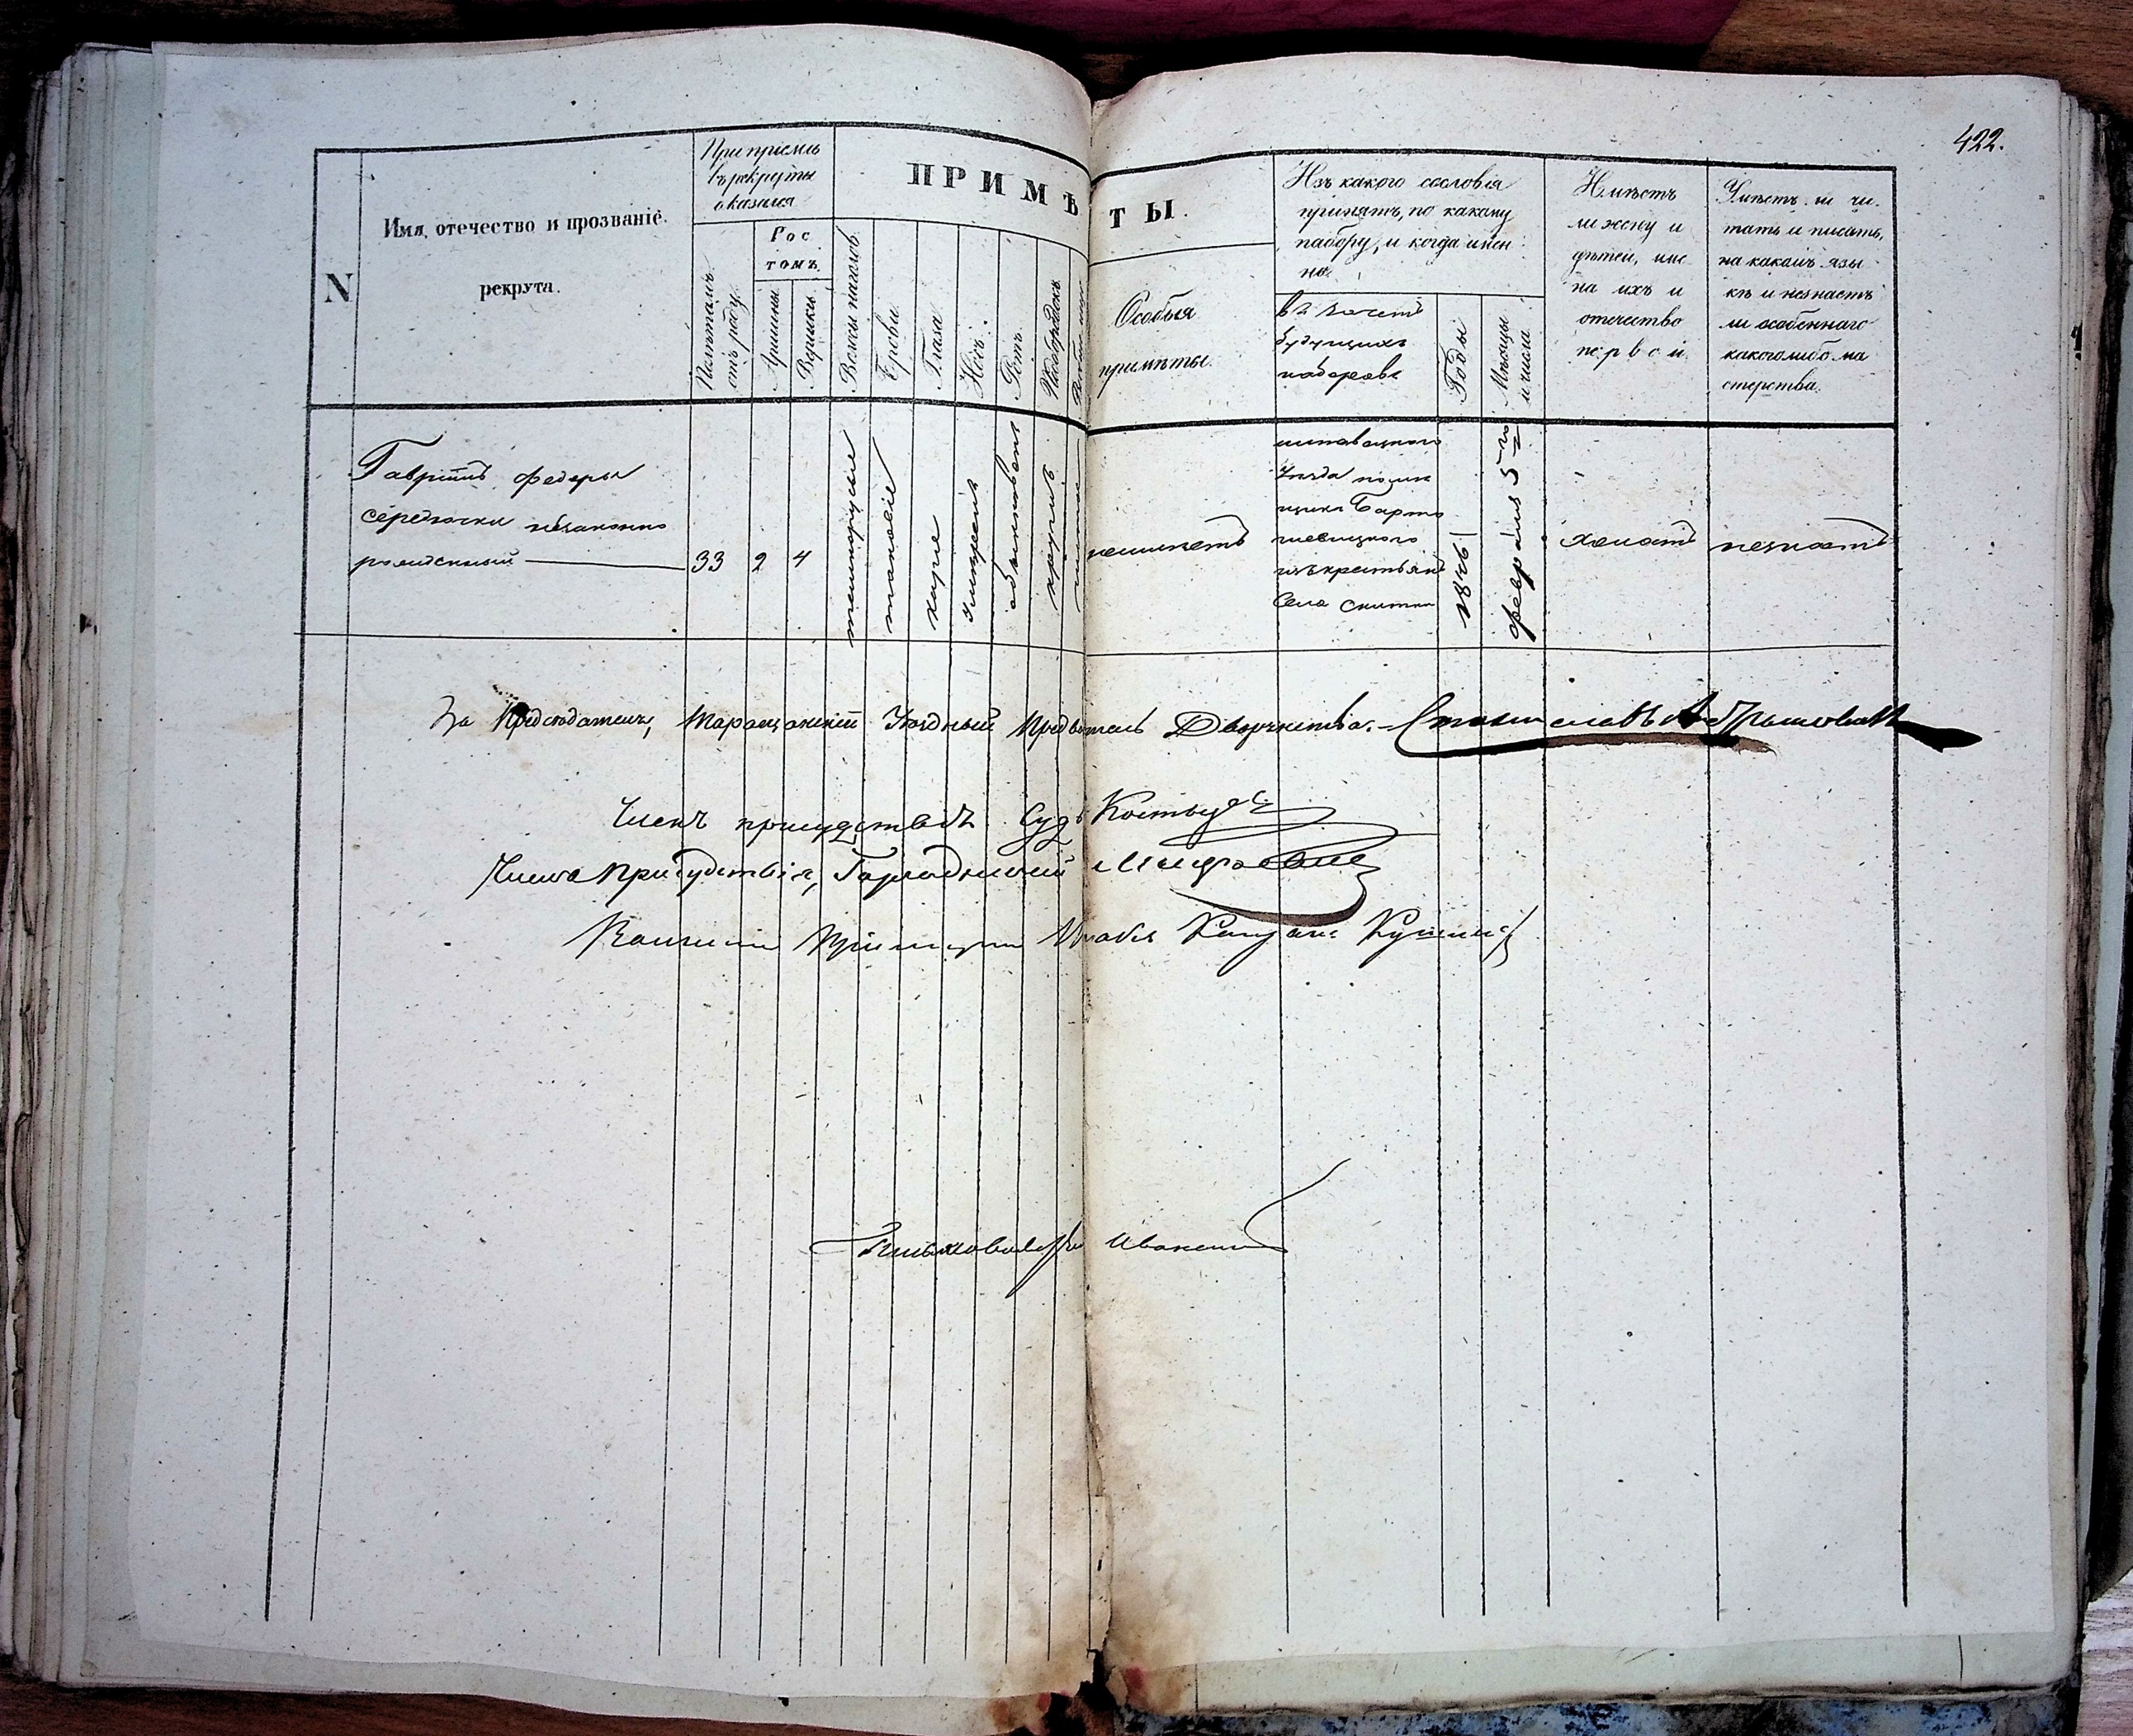 422.
N
Имя, отечество и прозваніе.
рекрута.
При пріемѣ
въ рекруты
оказался
Лѣтъ
отъ роду.
Рос
томъ.
Аршины
Вершки
ПРИМѢ
ТЫ.
Волосы на голов.
Брови
Глаза
Носъ
Ротъ
Подбородокъ
Особыя
примѣты.
Изъ какого сословія
принятъ, по какому
набору, и когда имен
но.
въ зачетъ
будущихъ
наборовъ
Годы
Мѣсяцы
и числа
Имѣетъ
ли жену и
дѣтей, име
на ихъ и
отчество
первой.
Умѣетъ ли чи-
тать и писать,
на какомъ язы
кѣ и незнаетъ
ли особеннаго
какоголибо ма
стерства.
Гавріилъ Федоры
Середюжки незаконно
рожденный
33
2
4
темнорусые
таковые
карие
умѣрен
обыкновен
кругл
неимѣетъ
уѣзда помѣ
щика
изъ крестьянъ
Села
1846
февраля 5го
холостъ
незнаетъ
За Председателя, Таращанскій Уѣздный Предводитель Дворянства. Станиславъ
Членъ присудствія Судья
Члена Присудствія, Городничій